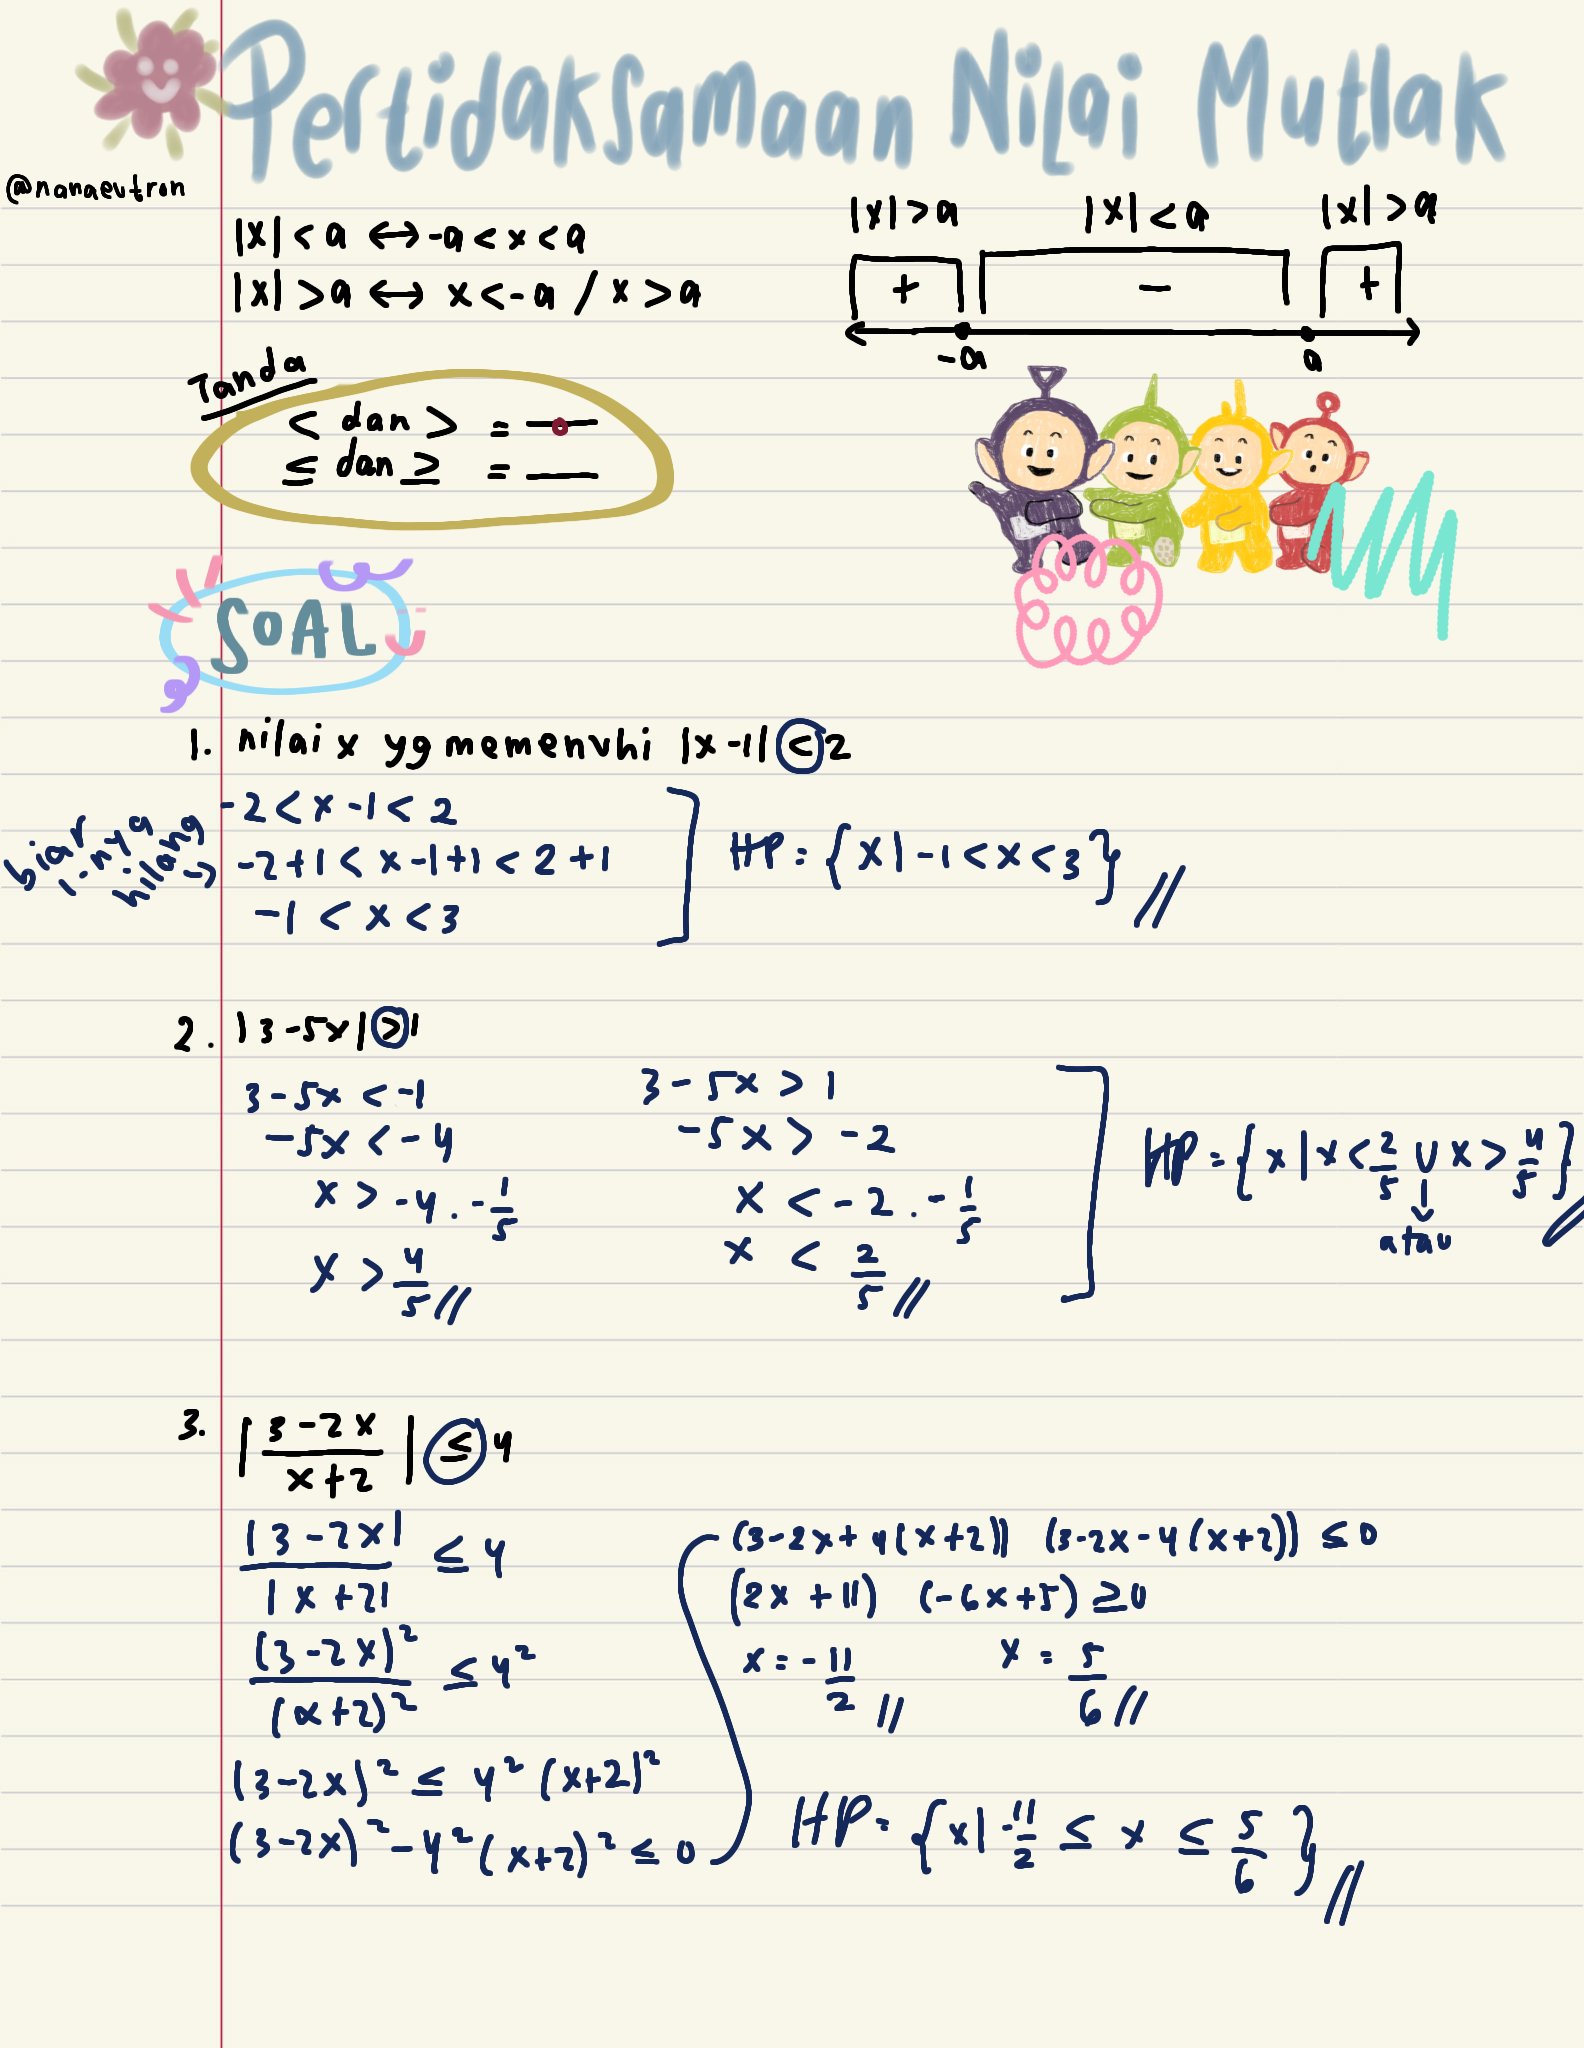 Pertidaksamaan Nilai Mutlak
@nanaeutron
|x| < a ↔ -a < x < a
|x| > a ↔ x < -a / x > a
|x| > a |x| < a |x| > a
+ - +
-a a
Tanda
< dan > =
≤ dan ≥ =
SOAL
1. nilai x yg memenuhi |x - 1| < 2
-2 < x - 1 < 2
biar 1-nya hilang → -2 + 1 < x - 1 + 1 < 2 + 1
-1 < x < 3
HP = {x | -1 < x < 3} //
2. |3 - 5x| > 1
3 - 5x < -1
-5x < -4
x > -4 . -1/5
x > 4/5 //
3 - 5x > 1
-5x > -2
x < -2 . -1/5
x < 2/5 //
HP = {x | x < 2/5 ∪ x > 4/5} //
↓
atau
3. |3 - 2x / x + 2| ≤ 4
|3 - 2x| / |x + 2| ≤ 4
(3 - 2x)² / (x + 2)² ≤ 4²
(3 - 2x)² ≤ 4² (x + 2)²
(3 - 2x)² - 4² (x + 2)² ≤ 0
(3 - 2x + 4(x + 2)) (3 - 2x - 4(x + 2)) ≤ 0
(2x + 11) (-6x + 5) ≥ 0
x = -11/2 // x = 5/6 //
HP = {x | -11/2 ≤ x ≤ 5/6} //